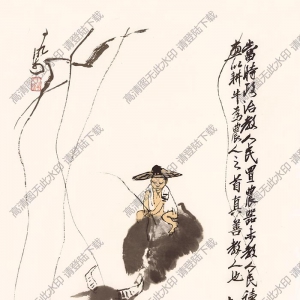 當時政治教人民買農器未教人民讀
畫以耕牛為農人之首真善教人也
高清图无此水印 请登陆下载
高清图无此水印 请登陆下载
高清图无此水印 请登陆下载
高清图无此水印 请登陆下载
高清图无此水印 请登陆下载
高清图无此水印 请登陆下载